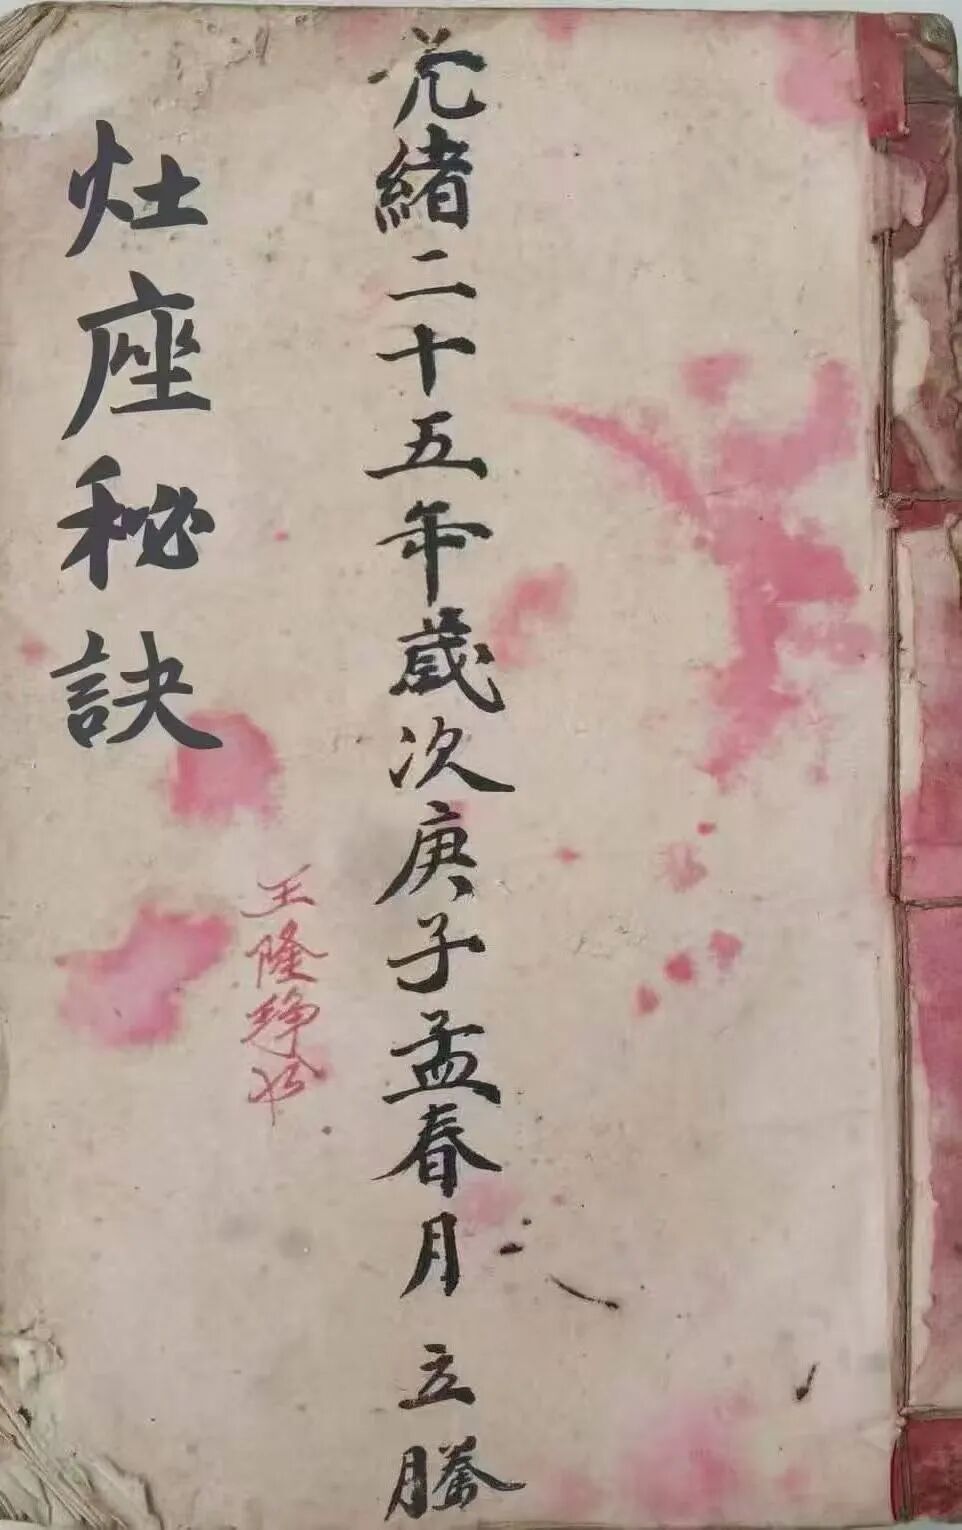 光緒二十五年歲次庚子孟春月 立謄
灶座秘訣
王隆錚